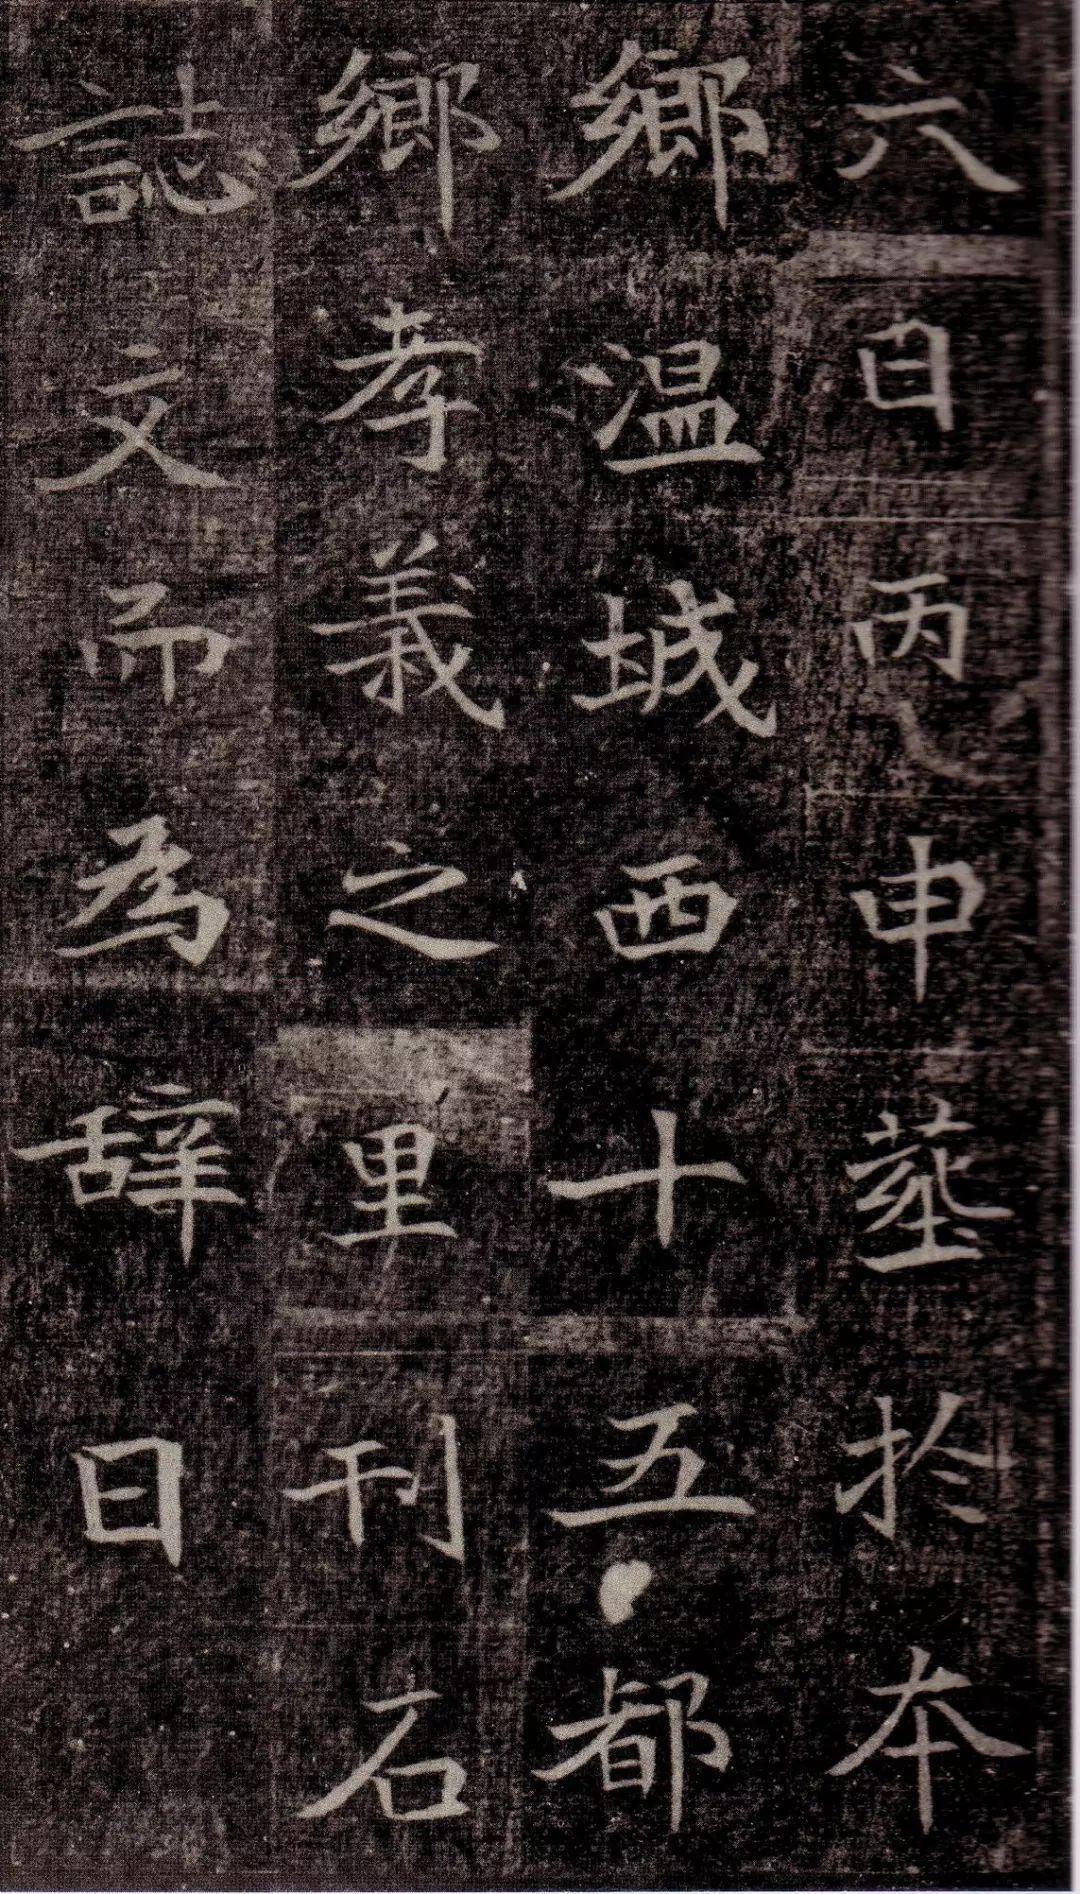 六日丙申葬於本
鄉温城西十五都
鄉孝義之里刊石
誌文而為辭曰